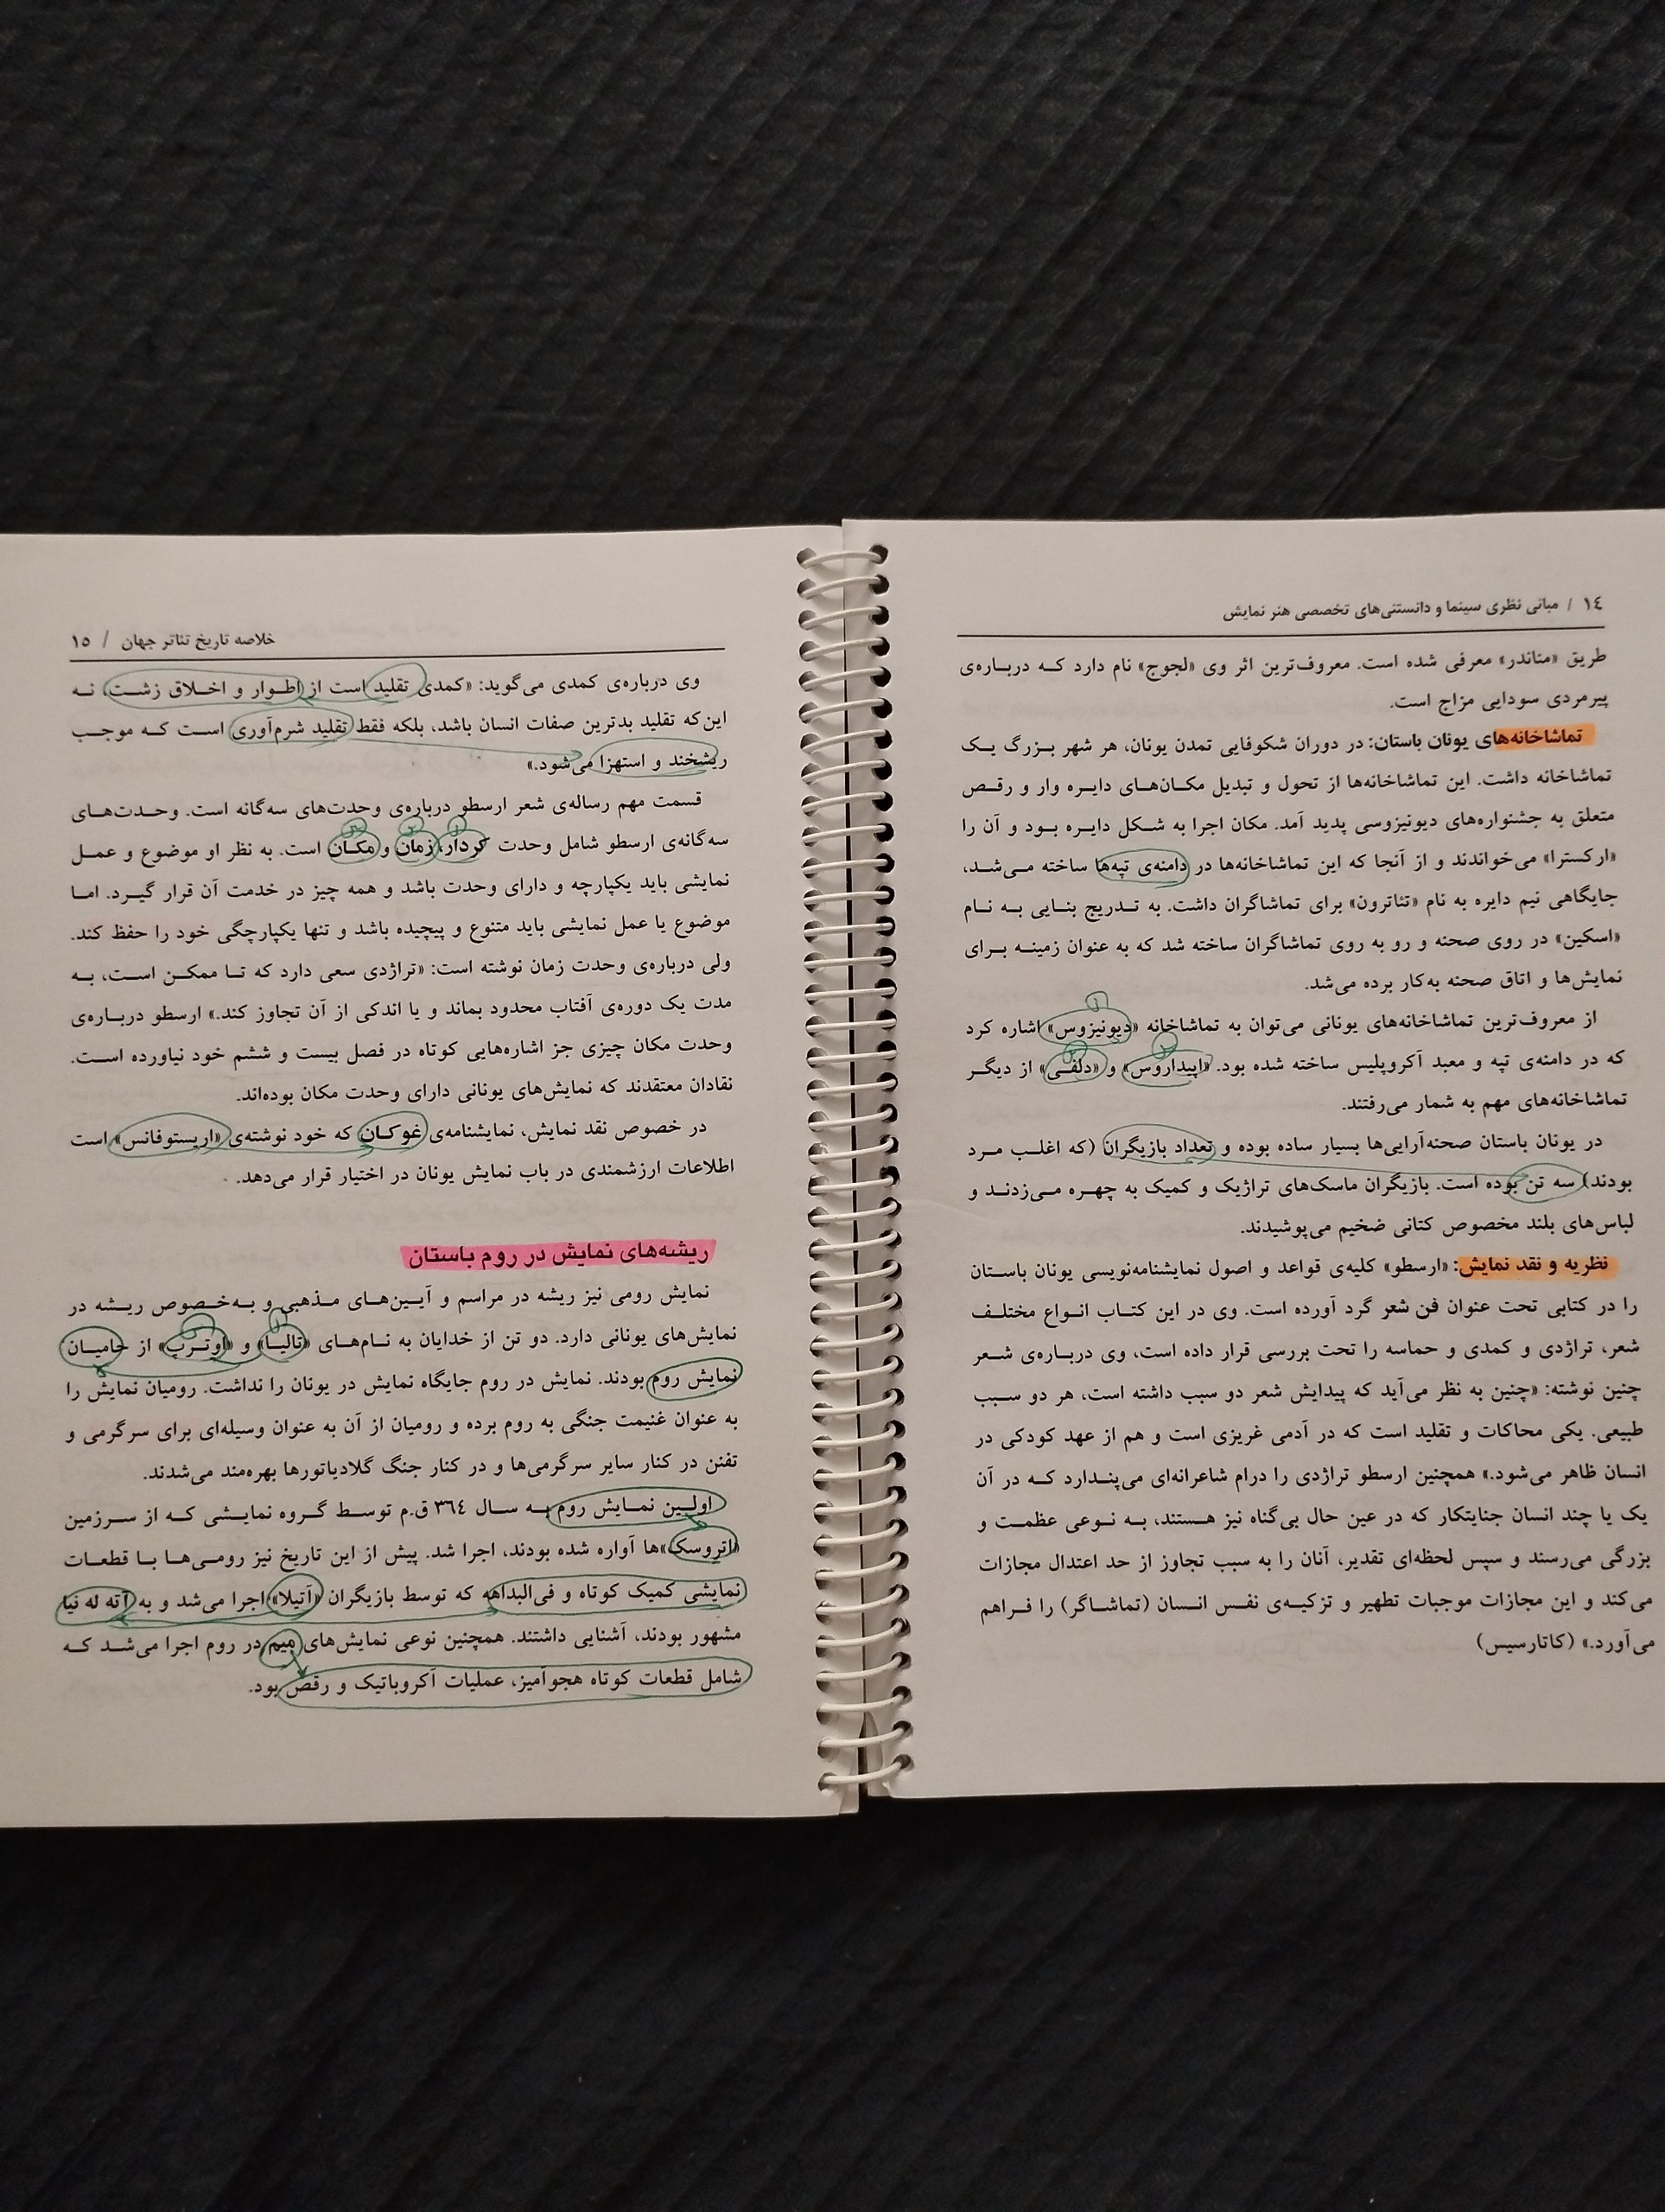 ١٤ / مبانی نظری سینما و دانستنی‌های تخصصی هنر نمایش
طریق «مناندر» معرفی شده است. معروف‌ترین اثر وی «لجوج» نام دارد که درباره‌ی
پیرمردی سودایی مزاج است.
تماشاخانه‌های یونان باستان: در دوران شکوفایی تمدن یونان، هر شهر بزرگ یک
تماشاخانه داشت. این تماشاخانه‌ها از تحول و تبدیل مکان‌های دایره وار و رقص
متعلق به جشنواره‌های دیونیزوسی پدید آمد. مکان اجرا به شکل دایره بود و آن را
«ارکسترا» می‌خواندند و از آنجا که این تماشاخانه‌ها در دامنه‌ی تپه‌ها ساخته می‌شد،
جایگاهی نیم دایره به نام «تئاترون» برای تماشاگران داشت. به تدریج بنایی به نام
«اسکین» در روی صحنه و رو به روی تماشاگران ساخته شد که به عنوان زمینه برای
نمایش‌ها و اتاق صحنه به‌کار برده می‌شد.
١
از معروف‌ترین تماشاخانه‌های یونانی می‌توان به تماشاخانه «دیونیزوس» اشاره کرد
که در دامنه‌ی تپه و معبد آکروپلیس ساخته شده بود. «اپیداروس» و «دلفی» از دیگر
تماشاخانه‌های مهم به شمار می‌رفتند.
در یونان باستان صحنه‌آرایی‌ها بسیار ساده بوده و تعداد بازیگران (که اغلب مرد
بودند) سه تن بوده است. بازیگران ماسک‌های تراژیک و کمیک به چهره می‌زدند و
لباس‌های بلند مخصوص کتانی ضخیم می‌پوشیدند.
نظریه و نقد نمایش: «ارسطو» کلیه‌ی قواعد و اصول نمایشنامه‌نویسی یونان باستان
را در کتابی تحت عنوان فن شعر گرد آورده است. وی در این کتاب انواع مختلف
شعر، تراژدی و کمدی و حماسه را تحت بررسی قرار داده است، وی درباره‌ی شعر
چنین نوشته: «چنین به نظر می‌آید که پیدایش شعر دو سبب داشته است، هر دو سبب
طبیعی. یکی محاکات و تقلید است که در آدمی غریزی است و هم از عهد کودکی در
انسان ظاهر می‌شود.» همچنین ارسطو تراژدی را درام شاعرانه‌ای می‌پندارد که در آن
یک یا چند انسان جنایتکار که در عین حال بی‌گناه نیز هستند، به نوعی عظمت و
بزرگی می‌رسند و سپس لحظه‌ای تقدیر، آنان را به سبب تجاوز از حد اعتدال مجازات
می‌کند و این مجازات موجبات تطهیر و تزکیه‌ی نفس انسان (تماشاگر) را فراهم
می‌آورد.» (کاتارسیس)
خلاصه تاریخ تئاتر جهان / ١٥
وی درباره‌ی کمدی می‌گوید: «کمدی تقلید است از اطوار و اخلاق زشت، نه
این‌که تقلید بدترین صفات انسان باشد، بلکه فقط تقلید شرم‌آوری است که موجب
ریشخند و استهزا می‌شود.»
قسمت مهم رساله‌ی شعر ارسطو درباره‌ی وحدت‌های سه‌گانه است. وحدت‌های
١ ٢ ٣
سه‌گانه‌ی ارسطو شامل وحدت کردار، زمان و مکان است. به نظر او موضوع و عمل
نمایشی باید یکپارچه و دارای وحدت باشد و همه چیز در خدمت آن قرار گیرد. اما
موضوع یا عمل نمایشی باید متنوع و پیچیده باشد و تنها یکپارچگی خود را حفظ کند.
ولی درباره‌ی وحدت زمان نوشته است: «تراژدی سعی دارد که تا ممکن است، به
مدت یک دوره‌ی آفتاب محدود بماند و یا اندکی از آن تجاوز کند.» ارسطو درباره‌ی
وحدت مکان چیزی جز اشاره‌هایی کوتاه در فصل بیست و ششم خود نیاورده است.
نقادان معتقدند که نمایش‌های یونانی دارای وحدت مکان بوده‌اند.
در خصوص نقد نمایش، نمایشنامه‌ی غوکان که خود نوشته‌ی «اریستوفانس» است
اطلاعات ارزشمندی در باب نمایش یونان در اختیار قرار می‌دهد.
ریشه‌های نمایش در روم باستان
نمایش رومی نیز ریشه در مراسم و آیین‌های مذهبی و به‌خصوص ریشه در
نمایش‌های یونانی دارد. دو تن از خدایان به نام‌های «تالیا» و «اوترپ» از حامیان
نمایش روم بودند. نمایش در روم جایگاه نمایش در یونان را نداشت. رومیان نمایش را
به عنوان غنیمت جنگی به روم برده و رومیان از آن به عنوان وسیله‌ای برای سرگرمی و
تفنن در کنار سایر سرگرمی‌ها و در کنار جنگ گلادیاتورها بهره‌مند می‌شدند.
اولین نمایش روم به سال ٣٦٤ ق.م توسط گروه نمایشی که از سرزمین
«اتروسک»ها آواره شده بودند، اجرا شد. پیش از این تاریخ نیز رومی‌ها با قطعات
نمایشی کمیک کوتاه و فی‌البداهه که توسط بازیگران «آتیلا» اجرا می‌شد و به آته له نیا
مشهور بودند، آشنایی داشتند. همچنین نوعی نمایش‌های میم در روم اجرا می‌شد که
شامل قطعات کوتاه هجوآمیز، عملیات آکروباتیک و رقص بود.